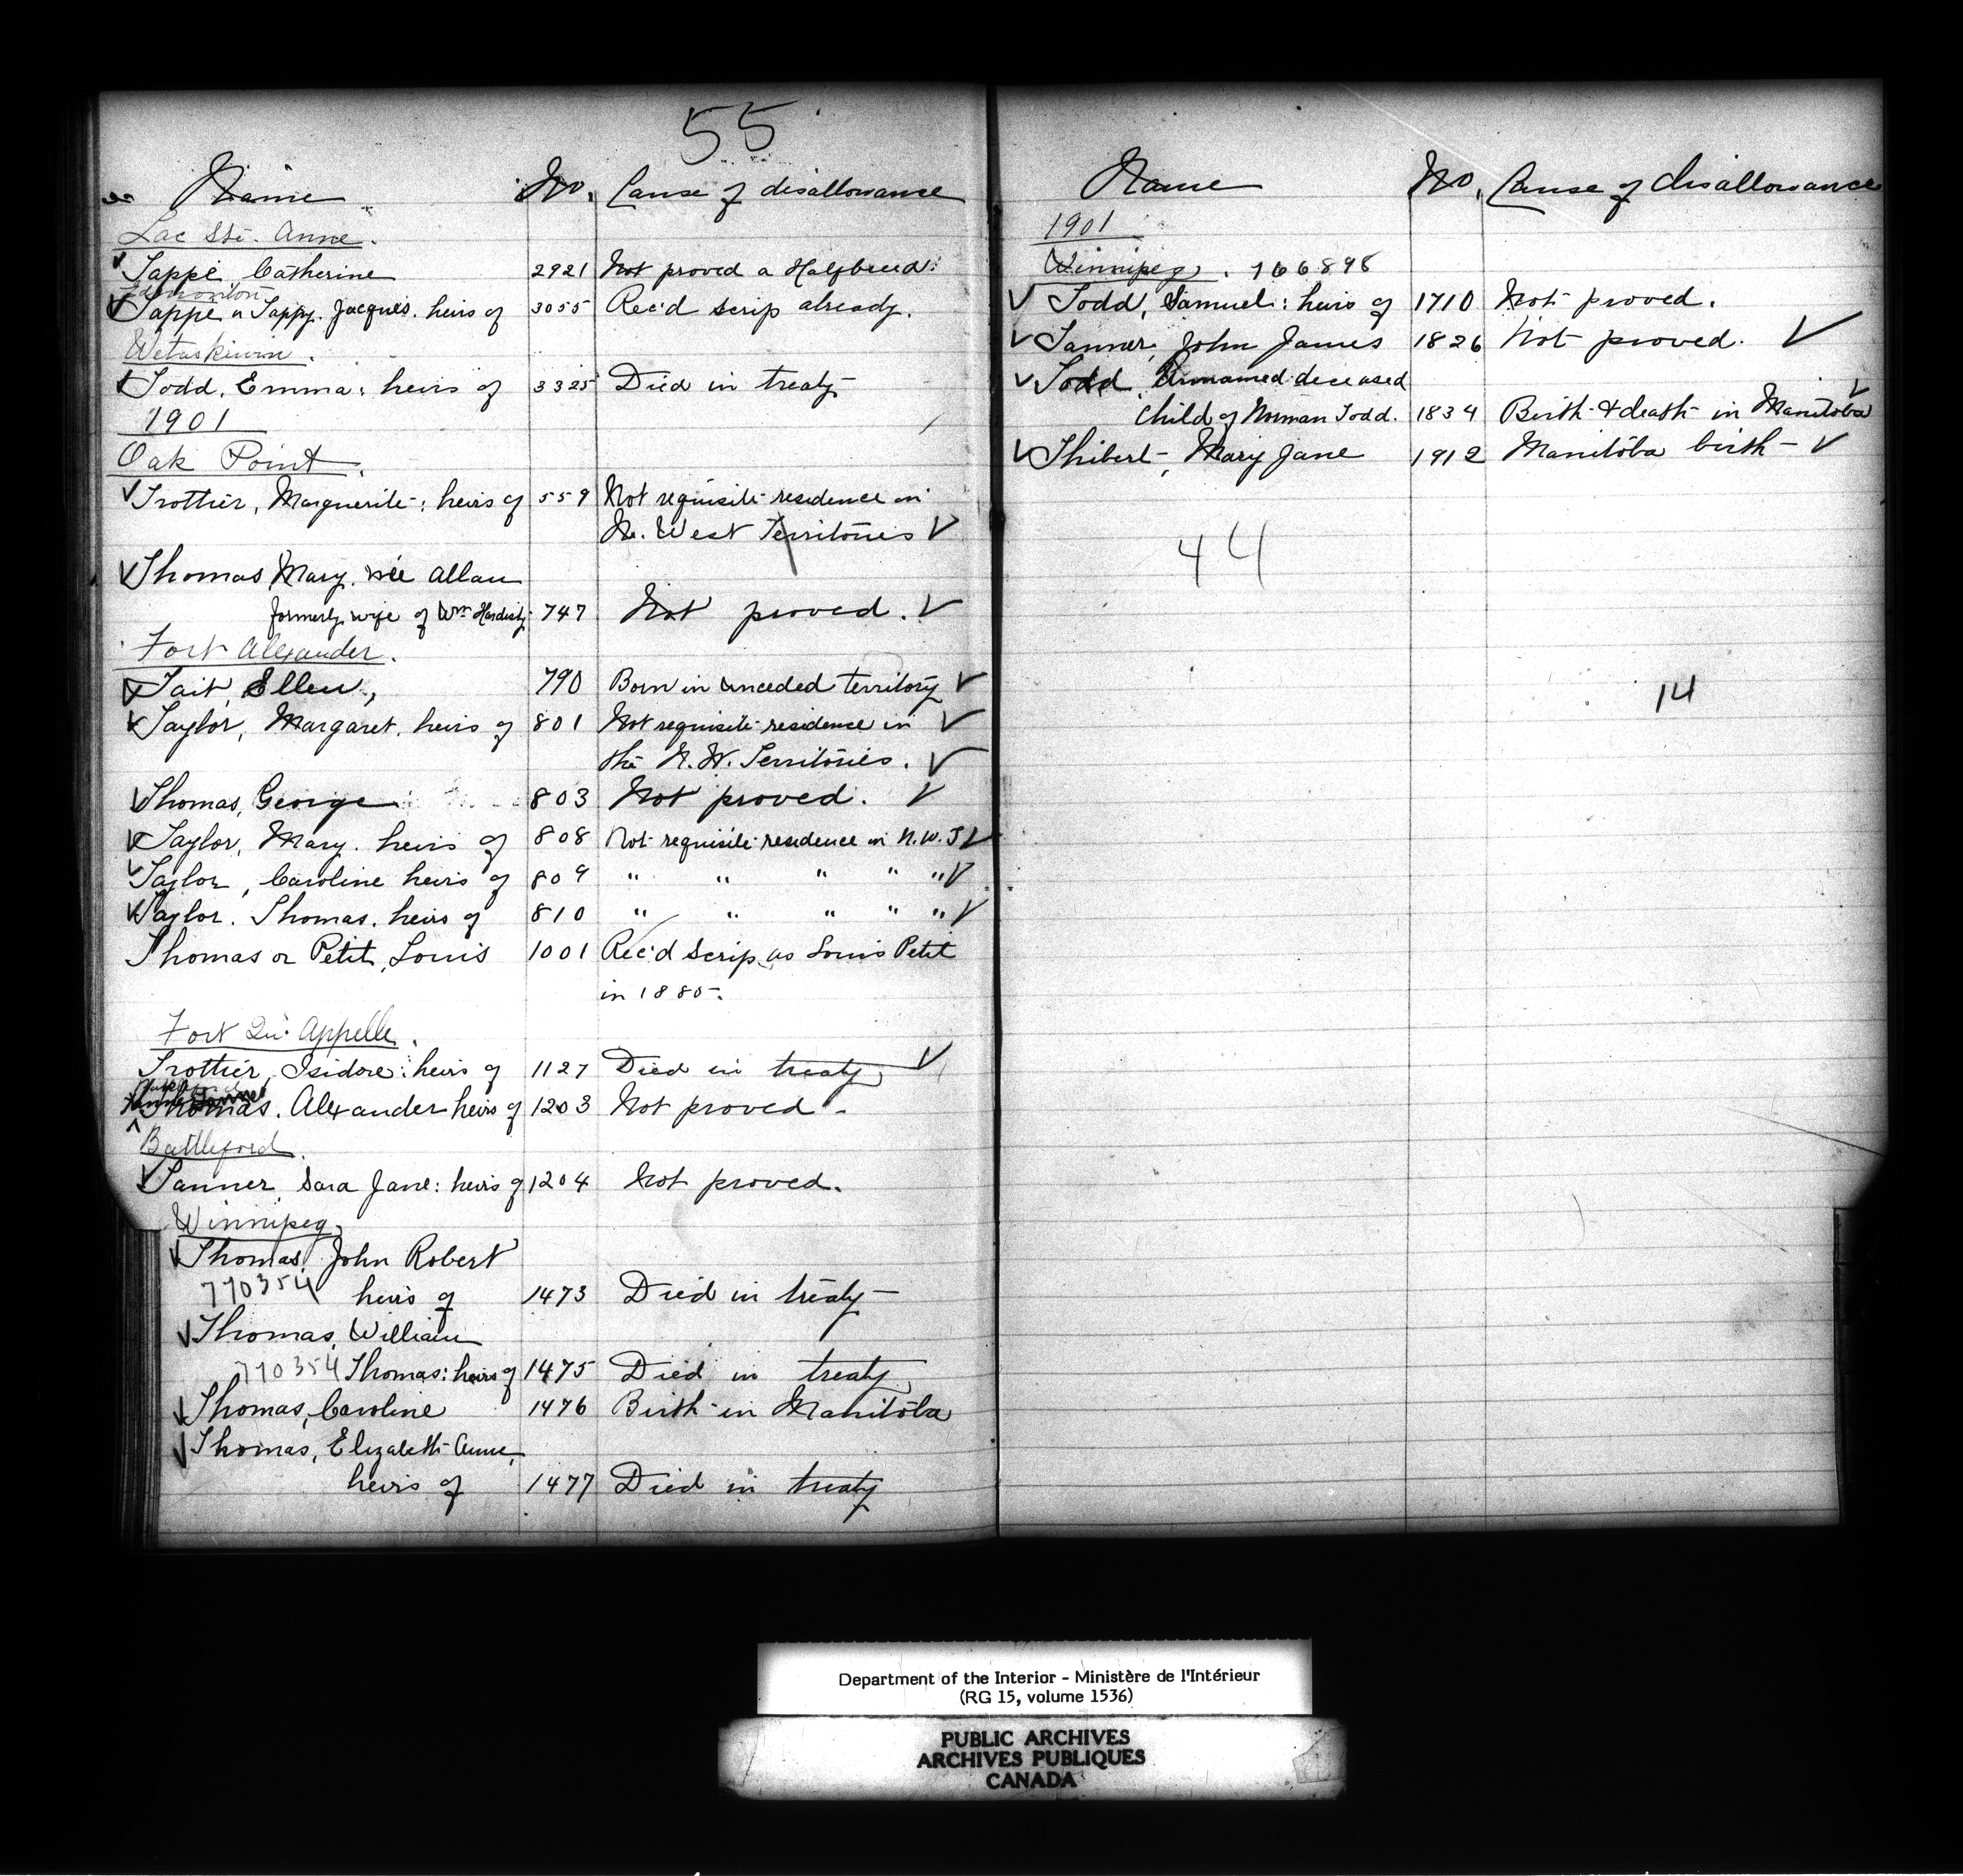 55
Name No. Cause of disallowance
Lac Ste. Anne.
Tappé, Catherine 2921 Not proved a Halfbreed.
Edmonton
Tappe or Tappy, Jacques. heirs of 3055 Rec'd scrip already.
Wetaskiwin.
Todd, Emma: heirs of 3325 Died in treaty
1901
Oak Point.
Trottier, Marguerite: heirs of 559 Not requisite residence in
N. West Territories
Thomas, Mary. née Allan
formerly wife of Wm Hardisty 747 Not proved.
Fort Alexander.
Tait, Ellen, 790 Born in unceded territory
Taylor, Margaret. heirs of 801 Not requisite residence in
the N. W. Territories.
Thomas, George 803 Not proved.
Taylor, Mary. heirs of 808 Not requisite residence in N.W.T
Taylor, Caroline heirs of 809 " " " " "
Taylor. Thomas. heirs of 810 " " " " "
Thomas or Petit, Louis 1001 Rec'd scrip as Louis Petit
in 1885.
Fort Qu'Appelle.
Trottier, Isidore: heirs of 1127 Died in treaty
Thomas, Alexander heirs of 1203 Not proved
Battleford.
Tanner, Sara Jane: heirs of 1204 Not proved.
Winnipeg
Thomas, John Robert
770354 heirs of 1473 Died in treaty
Thomas, William
770354 Thomas: heirs of 1475 Died in treaty
Thomas, Caroline 1476 Birth in Manitoba
Thomas, Elizabeth Anne,
heirs of 1477 Died in treaty
Name No. Cause of disallowance
1901
Winnipeg. 766898
Todd, Samuel: heirs of 1710 Not proved.
Tanner, John James 1826 Not proved.
Todd, Unnamed deceased
child of Norman Todd. 1834 Birth & death in Manitoba
Thibert, Mary Jane 1912 Manitoba birth
44
14
Department of the Interior - Ministère de l'Intérieur
(RG 15, volume 1536)
PUBLIC ARCHIVES
ARCHIVES PUBLIQUES
CANADA